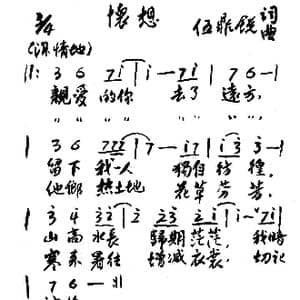 懷想
3/4
伍乖銳 詞曲
(深情地)
‖: 3 6 7i | i — 7i | 7 6 — |
親愛的你 去了遠方,
" " " " " " " "
| 3 6 222 | 7 — i7 | i3 3 — |
留下我一人 獨自徬徨,
他鄉熱土地 花草芳芳,
| 3 4 32 | 2 23 2i | i — 7i |
山高水長 歸期茫茫, 我暗
寒來暑往 增減衣裳, 切記
| 7 6 — ‖